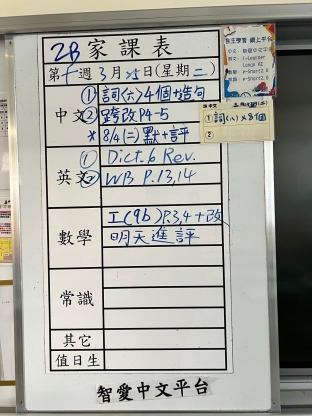 2B 家課表
第十週3月25日(星期二)
中文
①詞(六)4個+造句
②跨改P4-5
*8/4(二)默+評
英文
① Dict. 6 Rev.
② WB P.13,14
數學
工(9b)P.3,4+改
明天進評
常識
其它
值日生
智愛中文平台
自主學習 網上平台
①詞(八)×8個
②